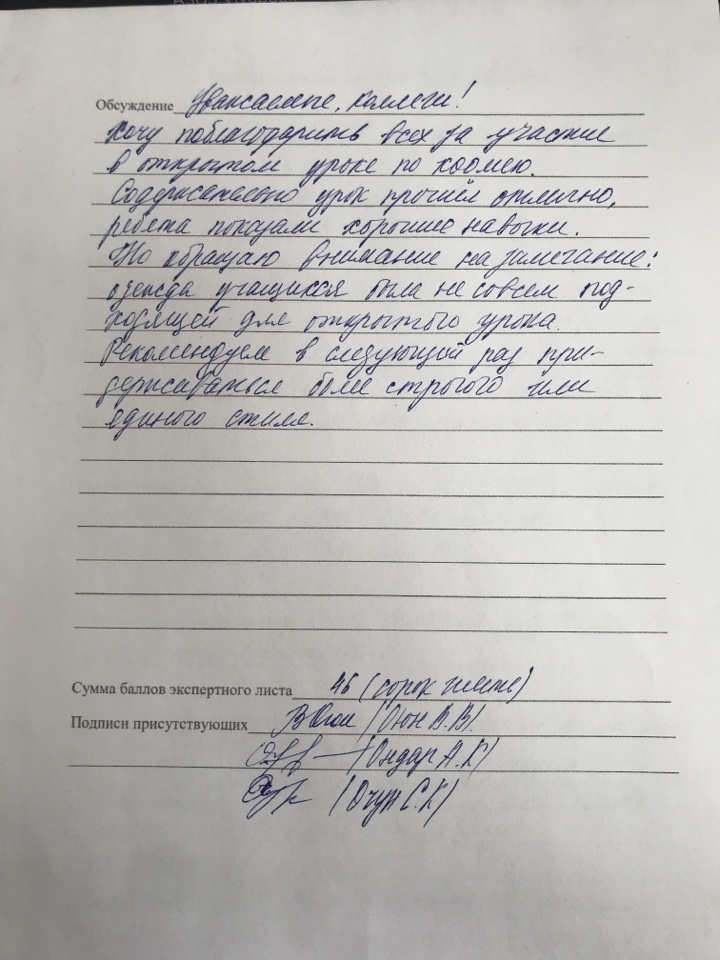 Обсуждение Уважаемые, коллеги!
Хочу поблагодарить всех за участие
в открытом уроке по
Содержательно урок прошёл отлично,
ребята показали хорошие навыки.
Но обращаю внимание на замечание:
одежда учащихся была не совсем под-
ходящей для открытого урока.
Рекомендуем в следующий раз при-
держиваться более строгого или
единого стиля.
Сумма баллов экспертного листа 46 (сорок шесть)
Подписи присутствующих (Оюн В.В).
(Ондар А.К)
(Очур С.К)